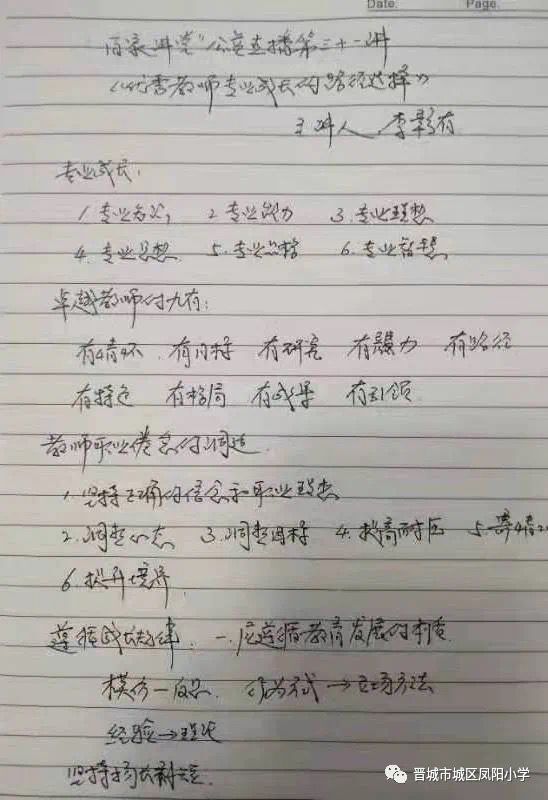 Date.
Page.
百家讲堂"公益直播第三十一讲
《优秀教师专业成长的路径选择》
主讲人
专业成长:
1. 专业 2. 专业能力 3. 专业理想
4. 专业思想 5. 专业品格 6. 专业智慧
卓越教师的九有:
有情怀 有 有研究 有 有路径
有特色 有格局 有成果 有引领
教师职业倦怠的调适
1. 坚持正确的信念和职业理想
2. 调整心态 3. 调整 4. 提高耐压 5. 寄情
6. 提升境界
遵循成长规律: 一. 应遵循教育发展的本质
模仿一反思 行为方式→立场方法
经验→理论
坚持扬长
晋城市城区凤阳小学